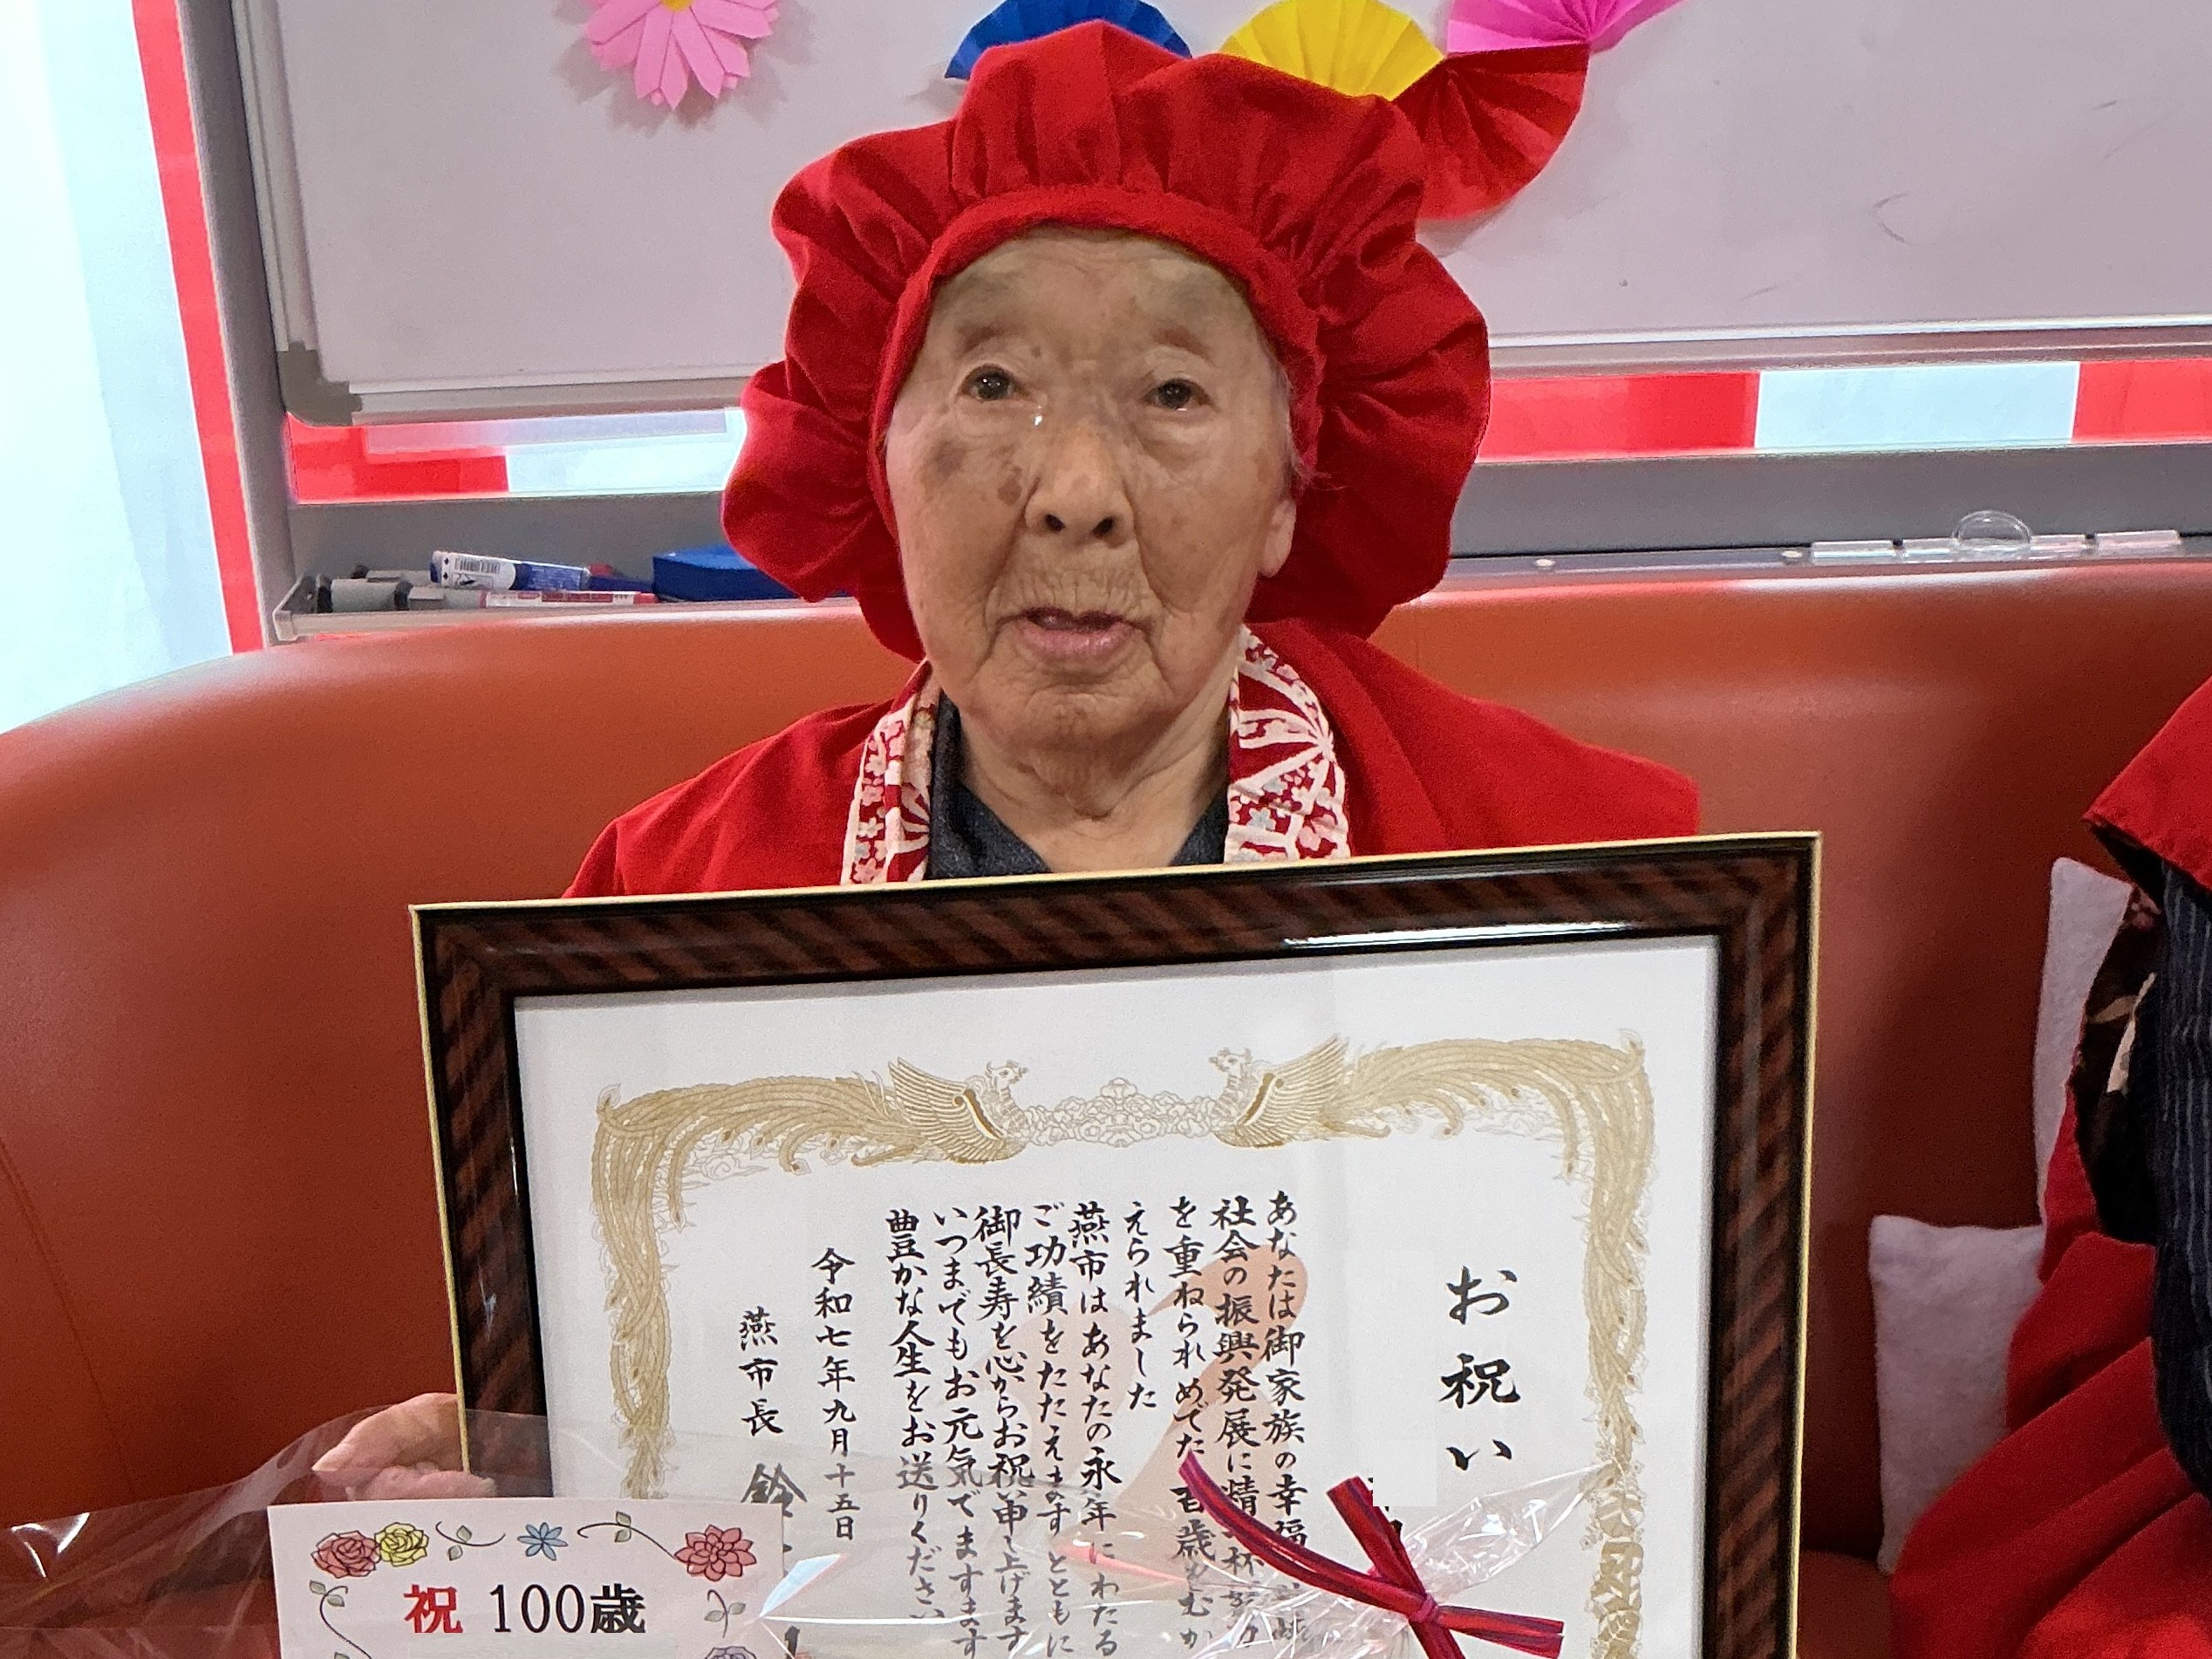 お祝い
あなたは御家族の幸福
社会の振興発展に精
を重ねられめでたく百歳をむか
えられました
燕市はあなたの永年にわたる
ご功績をたたえますとともに
御長寿を心からお祝い申し上げます
いつまでもお元気でますます
豊かな人生をお送りください
令和七年九月十五日
燕市長 鈴
祝 100歳